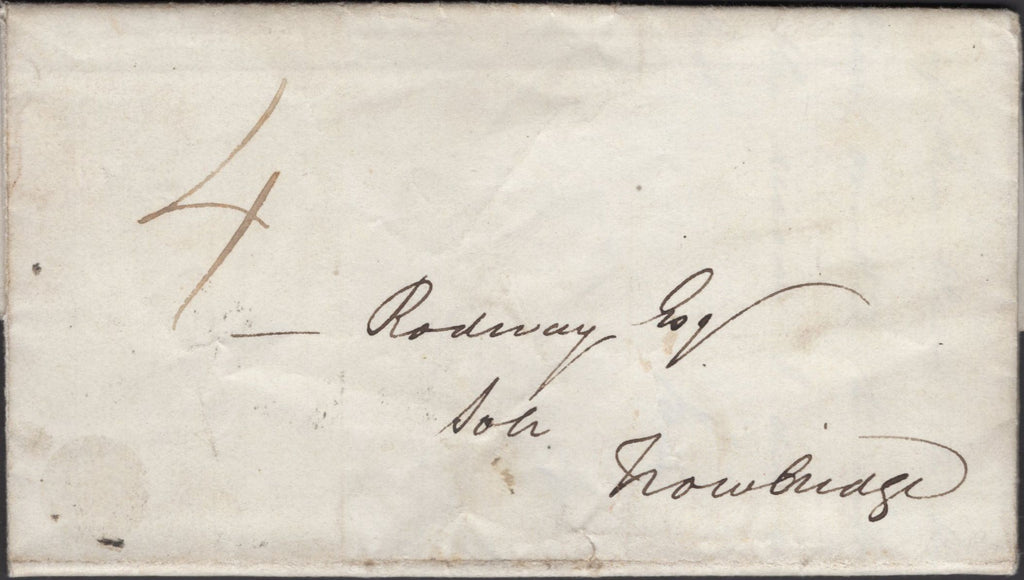 4
— Rodway Esq
Solr
Trowbridge